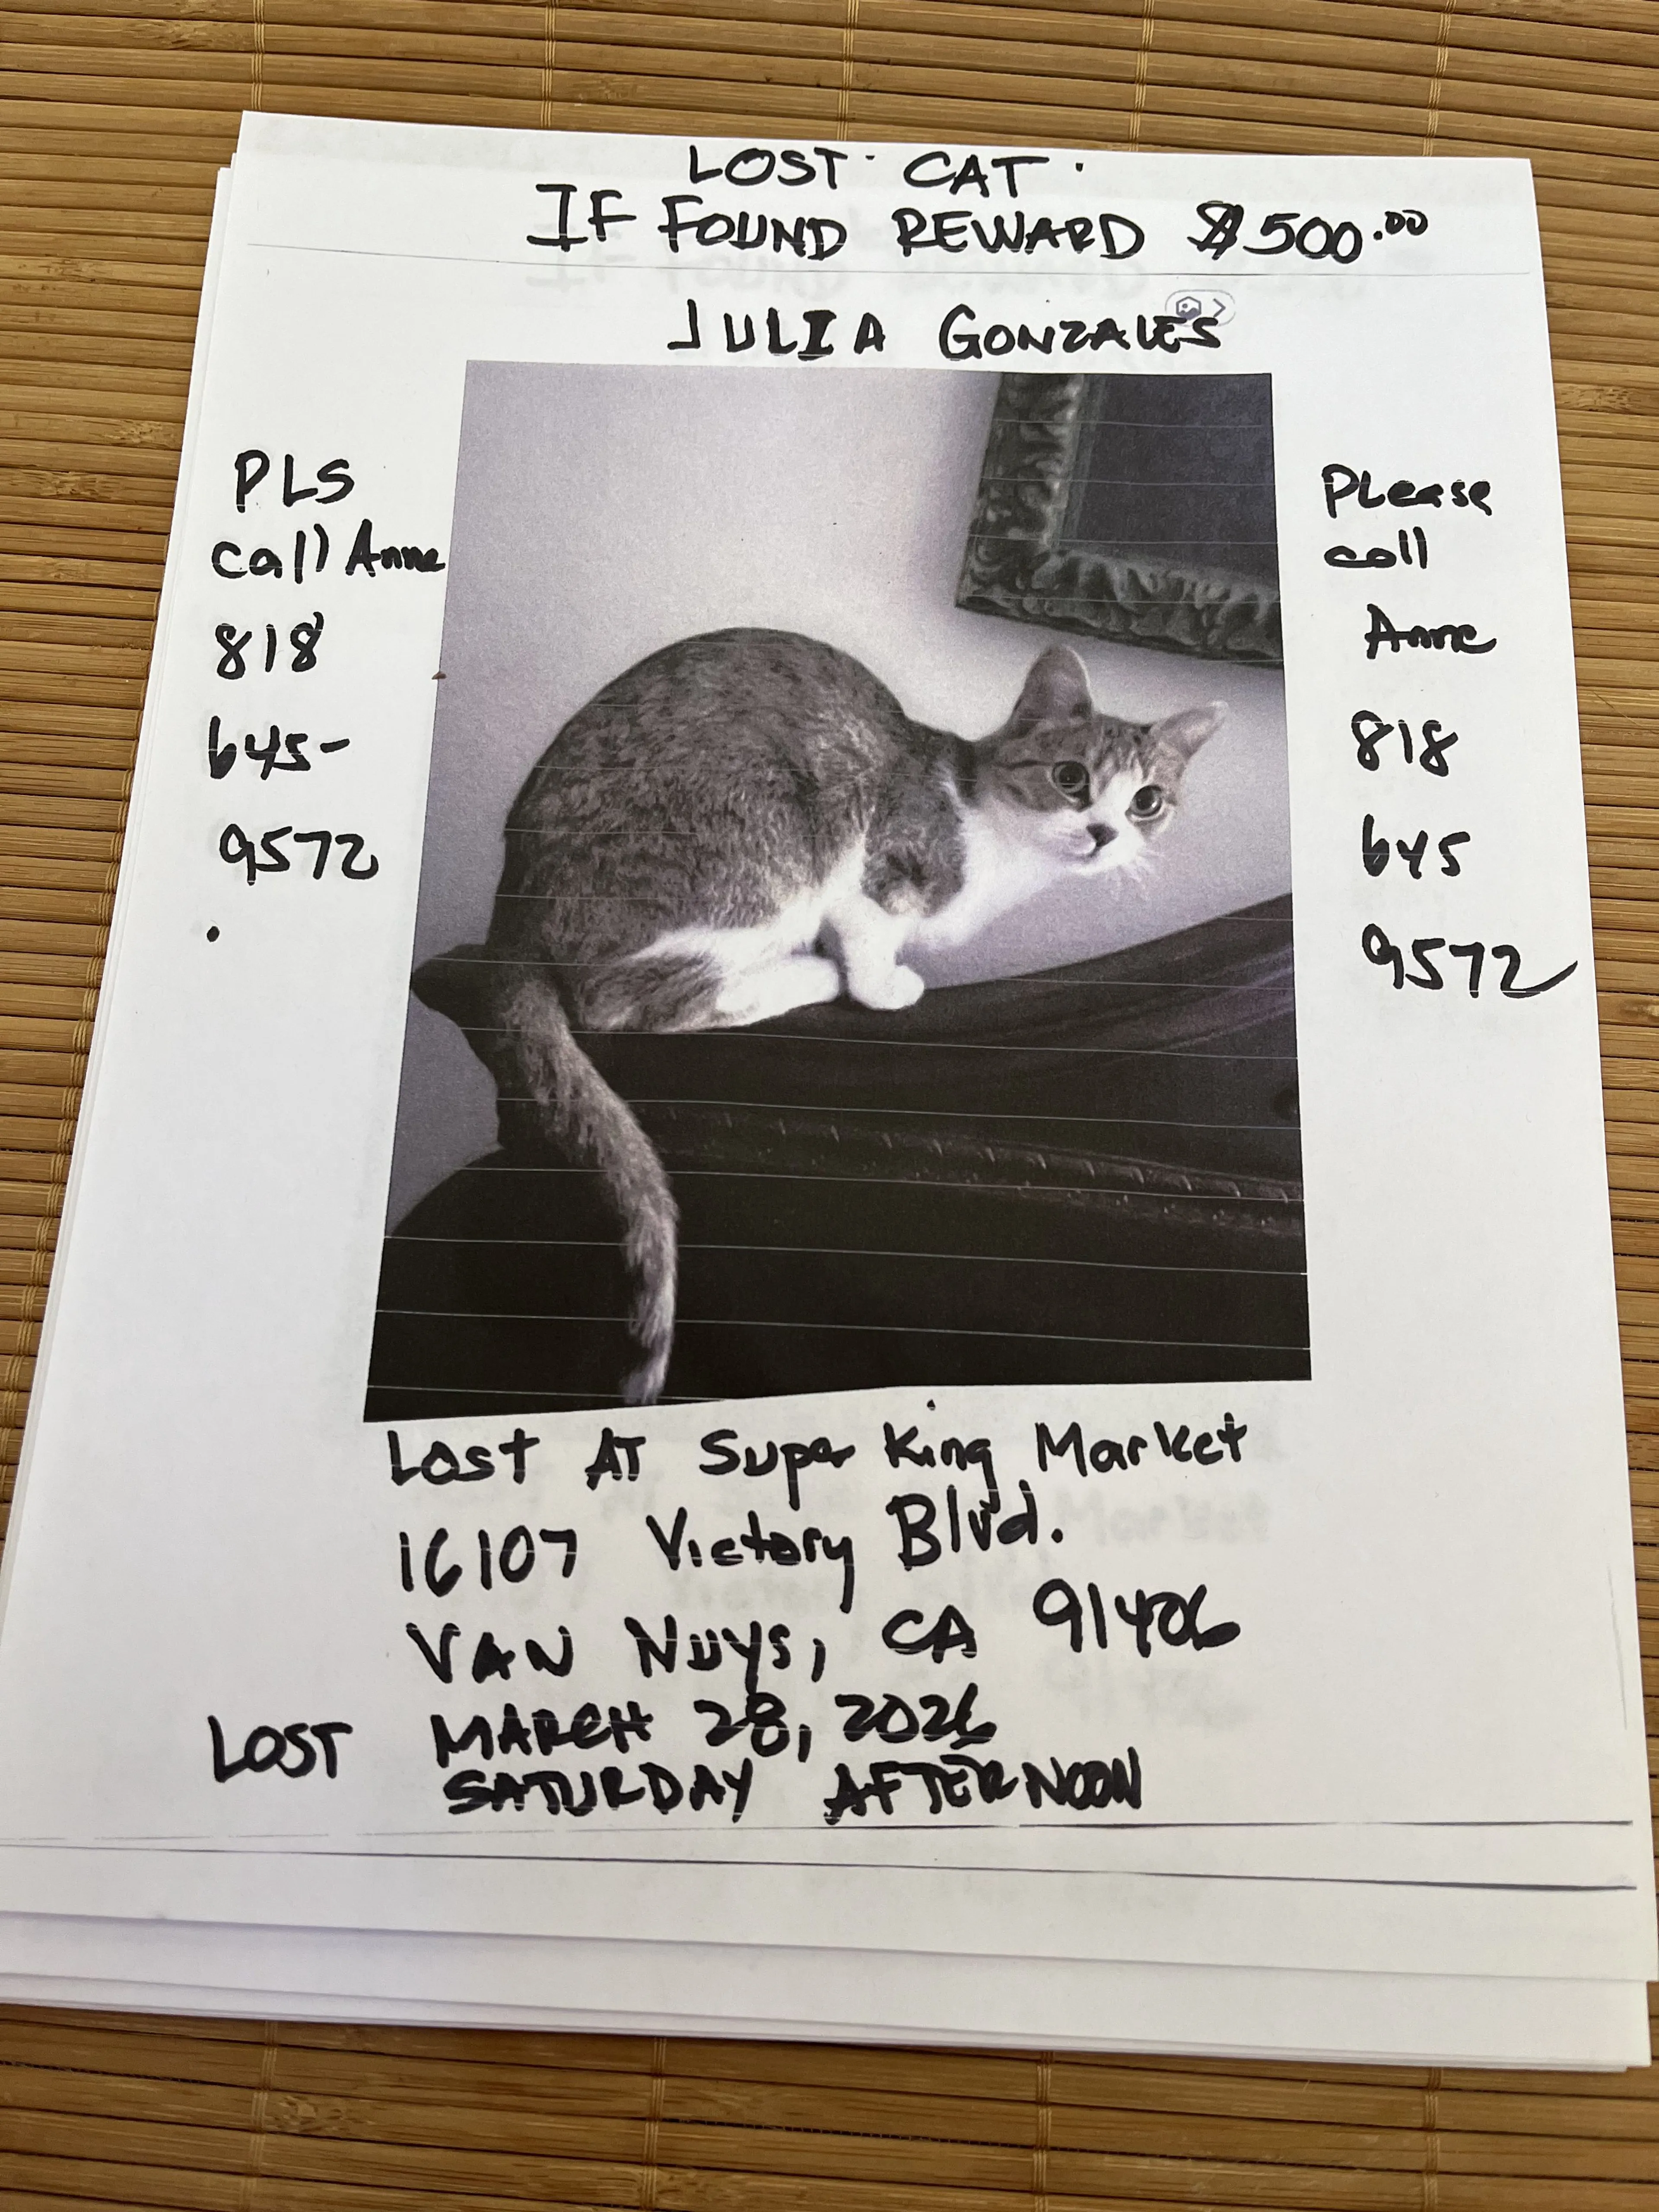 LOST CAT.
IF FOUND REWARD $500.00
JULIA GONZALES
PLS
call Anne
818
645-
9572
Please
call
Anne
818
645
9572
Lost AT Super King Market
16107 Victory Blvd.
VAN NUYS, CA 91406
LOST MARCH 28, 2026
SATURDAY AFTERNOON